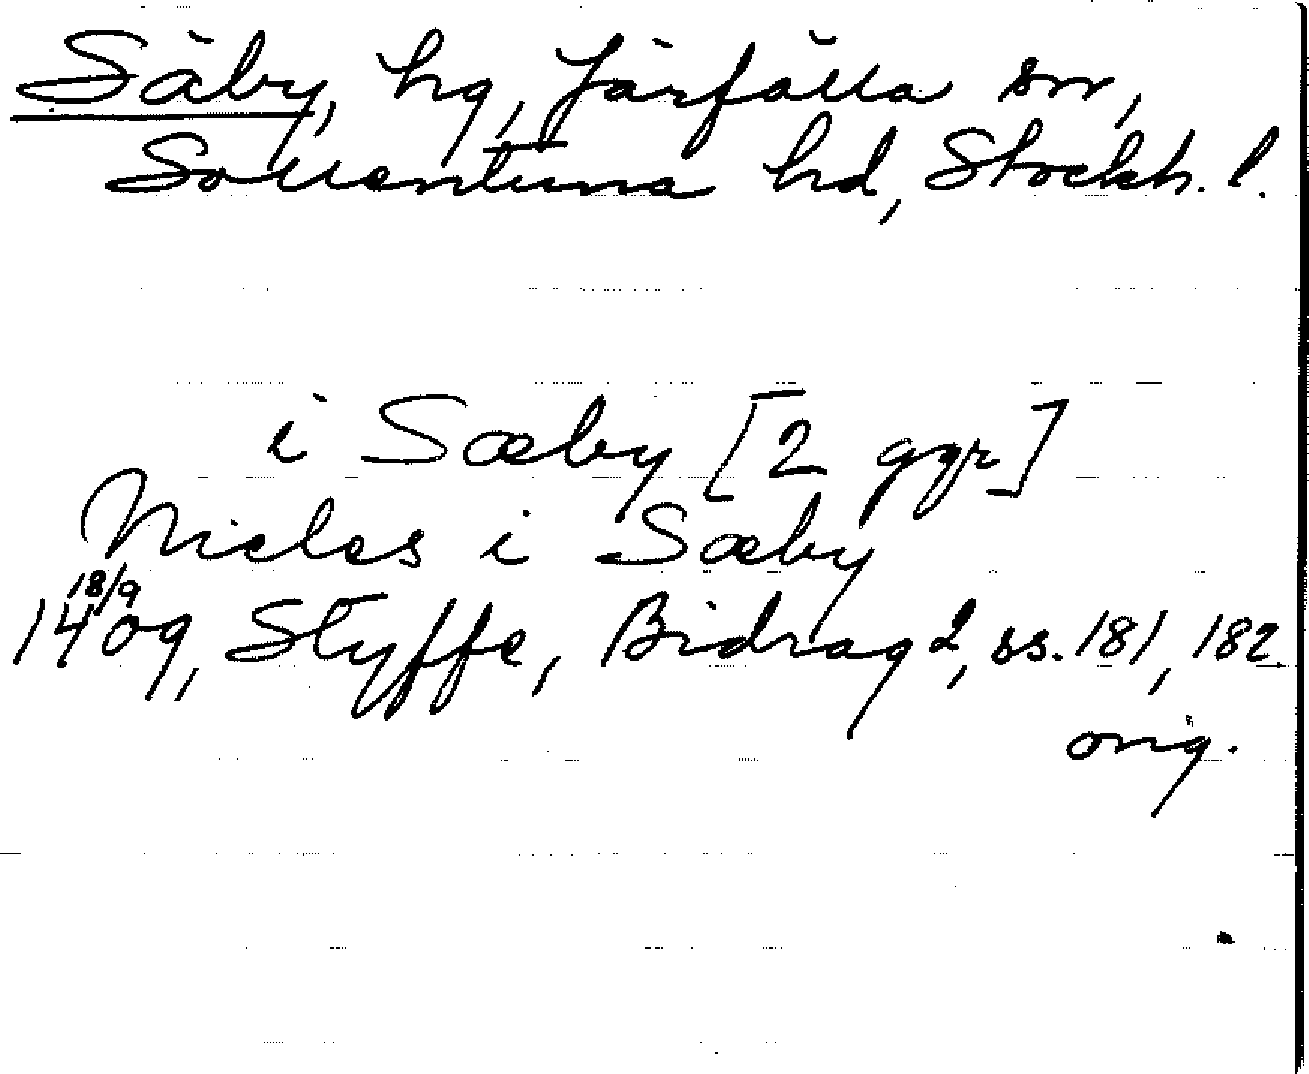 Säby, hg, Järfälla sn,
Sollentuna hd, Stockh. l.
i Sæby [2 ggr]
Nicles i Sæby
18/9
1409, Styffe, Bidrag 2, ss. 181, 182
orig.